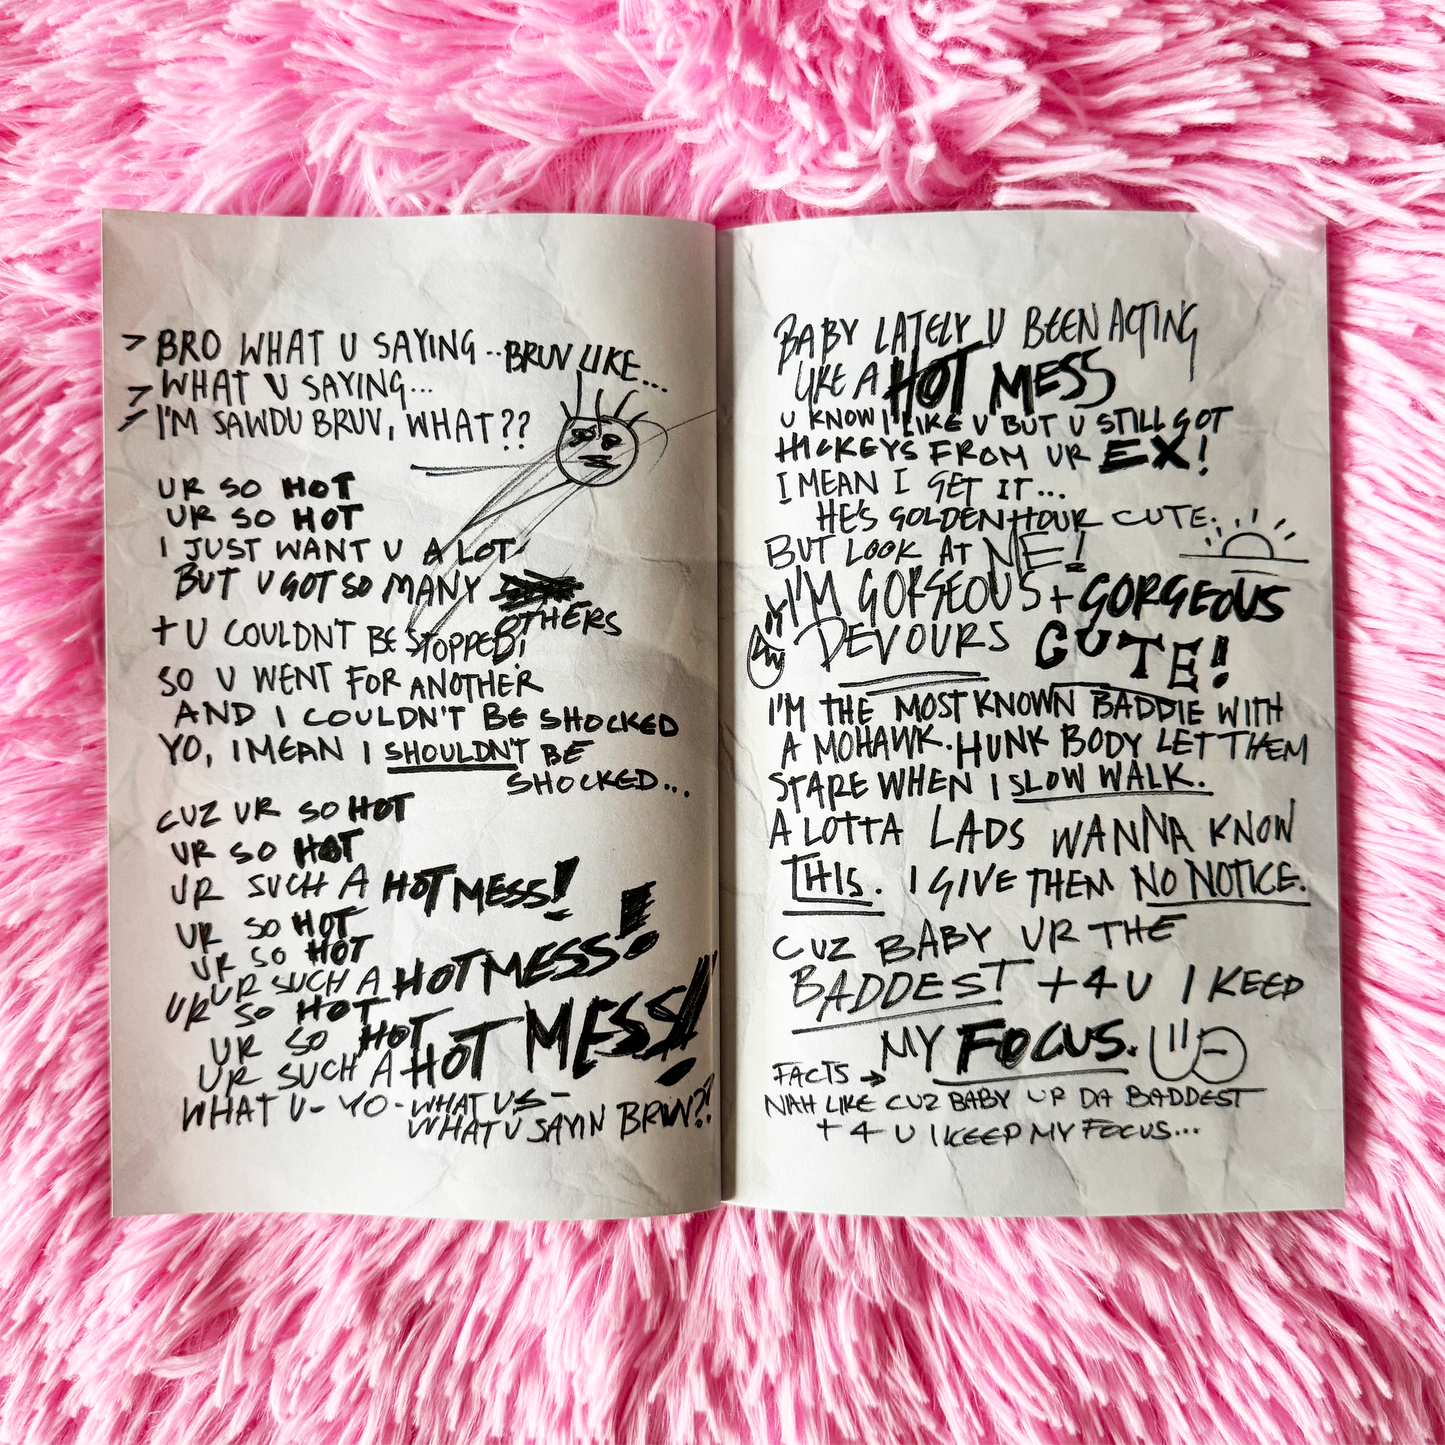 > BRO WHAT U SAYING.. BRUV LIKE...
> WHAT U SAYING...
> I'M SAWDU BRUV, WHAT??
UR SO HOT
UR SO HOT
I JUST WANT U A LOT
BUT U GOT SO MANY
OTHERS
+ U COULDN'T BE STOPPED!
SO U WENT FOR ANOTHER
AND I COULDN'T BE SHOCKED
YO, I MEAN I SHOULDN'T BE
SHOCKED...
CUZ UR SO HOT
UR SO HOT
UR SUCH A HOT MESS!
UR SO HOT
UR SO HOT
UR SUCH A HOT MESS!
UR SO HOT
UR SO HOT
UR SUCH A HOT MESS!
WHAT U - YO - WHAT U S -
WHAT U SAYIN BRUV??
BABY LATELY U BEEN ACTING
LIKE A HOT MESS
U KNOW I LIKE U BUT U STILL GOT
HICKEYS FROM UR EX!
I MEAN I GET IT...
HE'S GOLDEN HOUR CUTE.
BUT LOOK AT ME!
I'M GORGEOUS + GORGEOUS
DEVOURS CUTE!
I'M THE MOST KNOWN BADDIE WITH
A MOHAWK. HUNK BODY LET THEM
STARE WHEN I SLOW WALK.
A LOTTA LADS WANNA KNOW
THIS. I GIVE THEM NO NOTICE.
CUZ BABY UR THE
BADDEST + 4 U I KEEP
MY FOCUS.
FACTS →
NAH LIKE CUZ BABY UR DA BADDEST
+ 4 U I KEEP MY FOCUS...